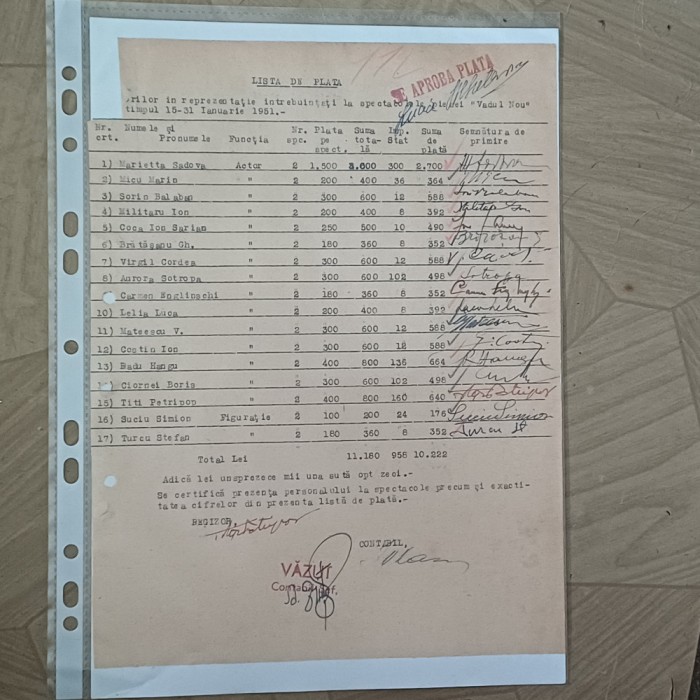 SE APROBA PLATA
LISTA DE PLATA
rilor in reprezentație intrebuințați la spectacolele piesei "Vadul Nou"
timpul 15-31 Ianuarie 1951.-
Nr. Numele și Nr. Plata Suma Imp. Suma Semnătura de
crt. Pronumele Funcția spc. pe tota- Stat de primire
spect. lă plată
1) Marietta Sadova Actor 2 1,500 3.000 300 2.700
2) Micu Marin " 2 200 400 36 364
3) Sorin Balaban " 2 300 600 12 588
4) Militaru Ion " 2 200 400 8 392
5) Coca Ion Sarian " 2 250 500 10 490
6) Brătășanu Gh. " 2 180 360 8 352
7) Virgil Cordea " 2 300 600 12 588
8) Aurora Sotropa " 2 300 600 102 498 Sotropa
Carmen Englipschi " 2 180 360 8 352
10) Lelia Luca " 2 200 400 8 392
11) Mateescu V. " 2 300 600 12 588 Mateescu
12) Costin Ion " 2 300 600 12 588 I. Costin
13) Radu Hangu " 2 400 800 136 664
Ciornei Boris " 2 300 600 102 498
15) Titi Petripop " 2 400 800 160 640
16) Suciu Simion Figurație 2 100 200 24 176 Suciu Simion
17) Turcu Stefan " 2 180 360 8 352 Turcu St
Total Lei 11.180 958 10.222
Adică lei unsprezece mii una sută opt zeci.-
Se certifică prezența personalului la spectacole precum și exacti-
tatea cifrelor din prezenta listă de plată.-
REGIZOR,
CONTABIL,
VĂZUT